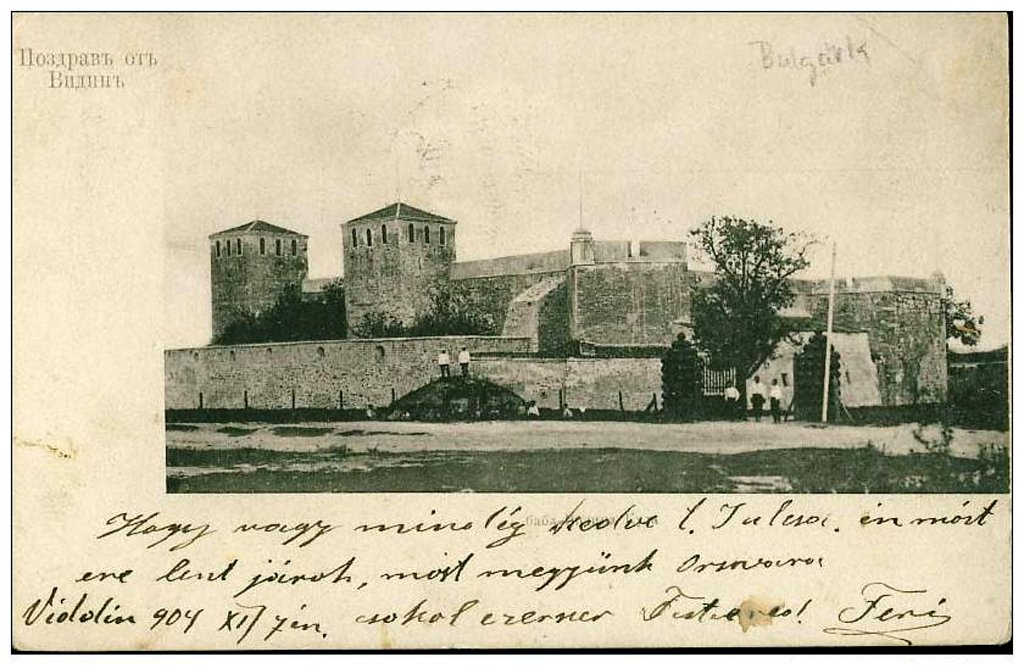 Поздравъ отъ
Видинъ
Bulgária
баба
Hogy vagy mindég kedve l. Julcsa, én most
erre lent járok, most megyünk Orsovára
Viddin 904 XI/7én, csokol ezerszer Feri